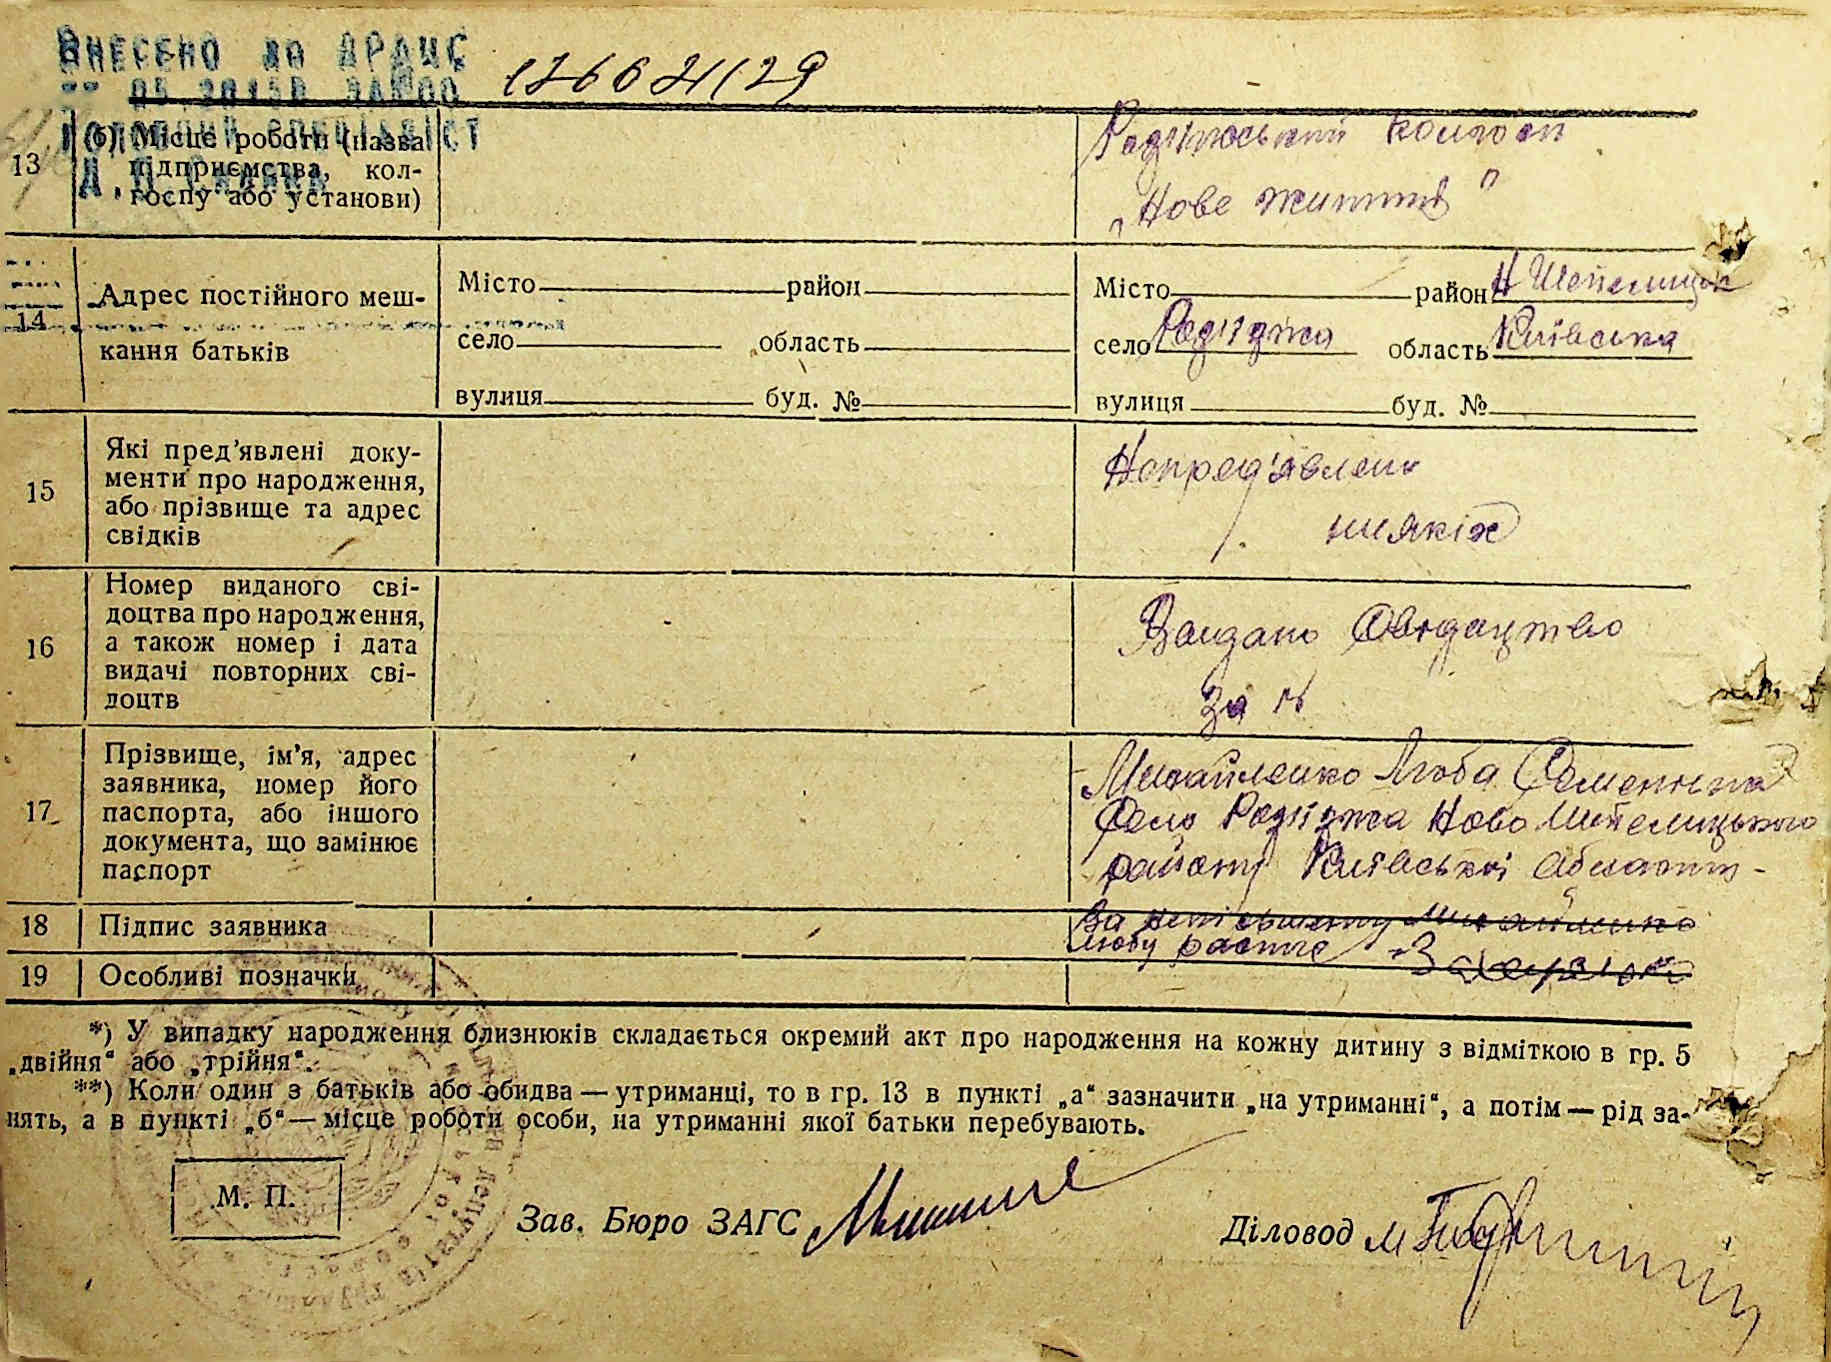 ВНЕСЕНО ДО ДРАЦС
05.2015Р
ГОЛОВНИЙ СПЕЦІАЛІСТ
13
б) Місце роботи (назва
підприємства, кол-
госпу або установи)
колгосп
„Нове життя"
14
Адрес постійного меш-
кання батьків
Місто район
село область
вулиця буд. №
Місто район Н Шепелицьк
село Роз'їзжа область Київська
вулиця буд. №
15
Які пред'явлені доку-
менти про народження,
або прізвище та адрес
свідків
Нопред'явлено
ниякіх
16
Номер виданого сві-
доцтва про народження,
а також номер і дата
видачі повторних сві-
доцтв
Видано Свидацтво
За №
17
Прізвище, ім'я, адрес
заявника, номер його
паспорта, або іншого
документа, що замінює
паспорт
Михайленко Люба Семенивна
Село Роз'їзжа Ново Шипелицького
району Київської области-
18
Підпис заявника
За
Любу
19
Особливі позначки
*) У випадку народження близнюків складається окремий акт про народження на кожну дитину з відміткою в гр. 5
„двійня“ або „трійня“.
**) Коли один з батьків або обидва — утриманці, то в гр. 13 в пункті „а“ зазначити „на утриманні“, а потім — рід за-
нять, а в пункті „б“ — місце роботи особи, на утриманні якої батьки перебувають.
М. П.
Зав. Бюро ЗАГС
Діловод